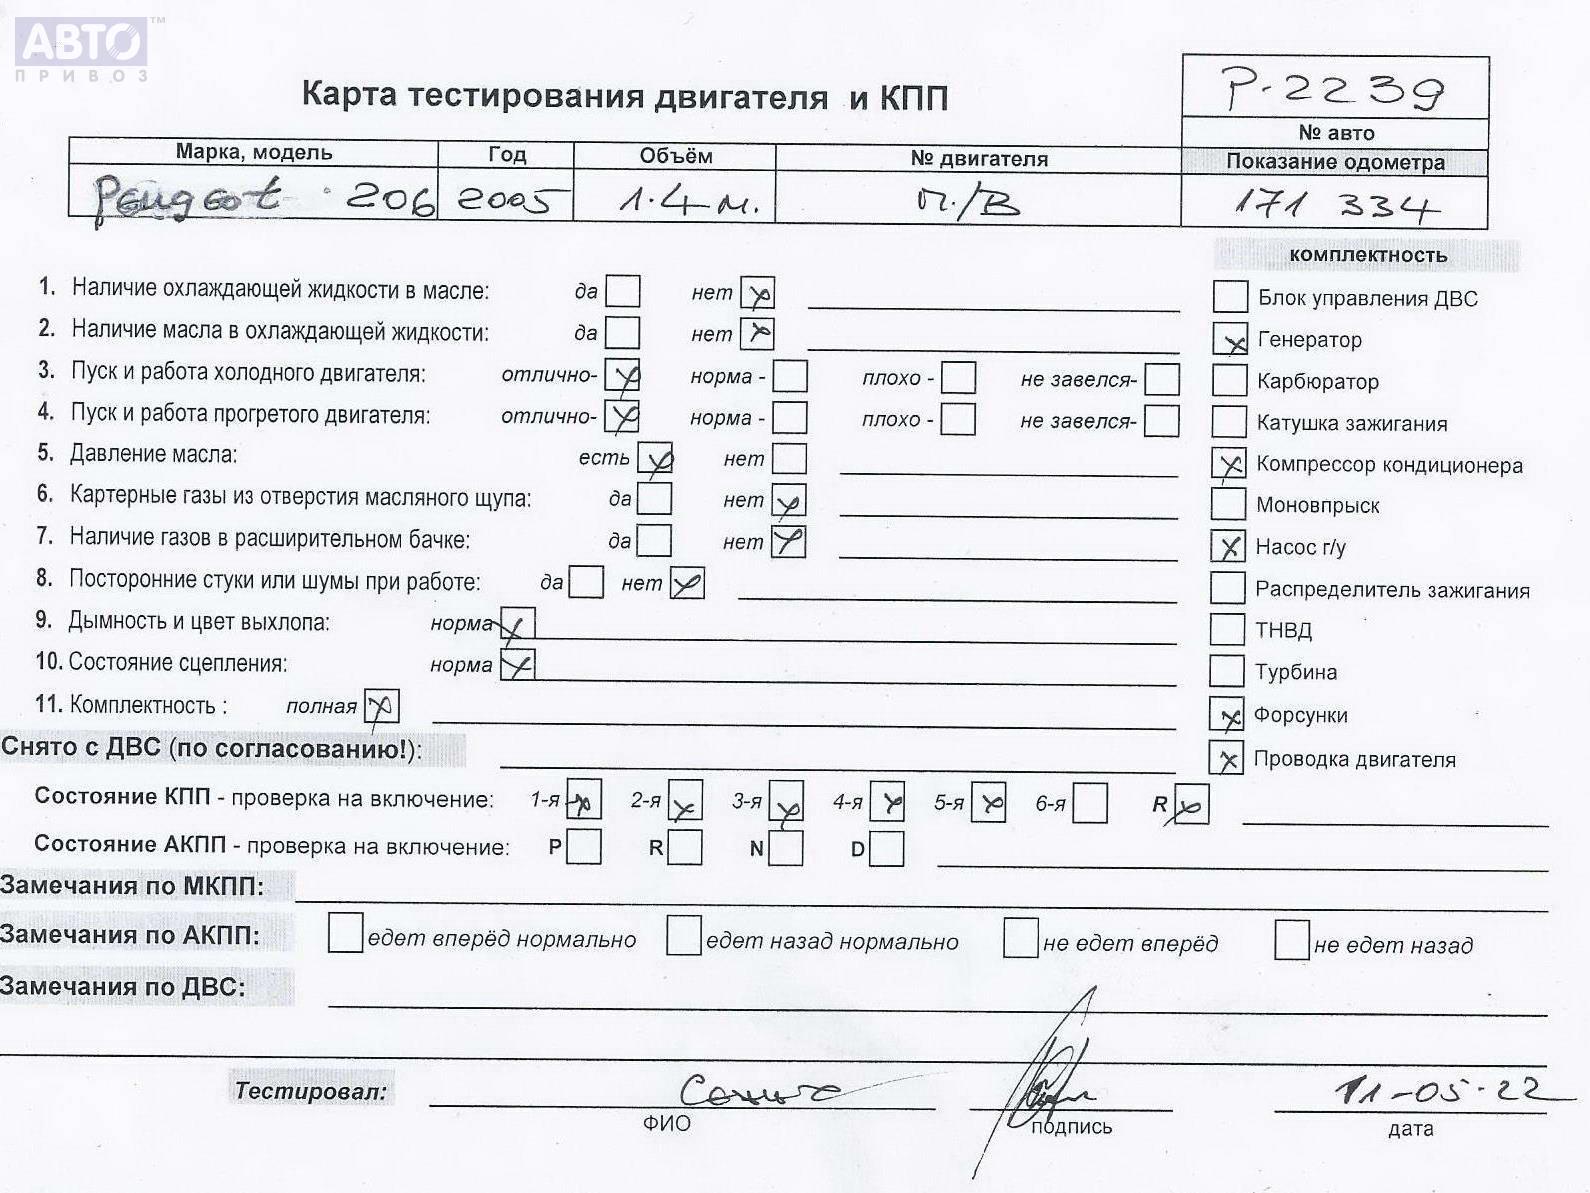 АВТО™
ПРИВОЗ
Карта тестирования двигателя и КПП
P-2239
№ авто
Марка, модель Год Объём № двигателя Показание одометра
Peugeot 206 2005 1.4 м. п./В 171 334
комплектность
1. Наличие охлаждающей жидкости в масле: да нет
Блок управления ДВС
2. Наличие масла в охлаждающей жидкости: да нет
Генератор
3. Пуск и работа холодного двигателя: отлично- норма - плохо - не завелся-
Карбюратор
4. Пуск и работа прогретого двигателя: отлично- норма - плохо - не завелся-
Катушка зажигания
5. Давление масла: есть нет
Компрессор кондиционера
6. Картерные газы из отверстия масляного щупа: да нет
Моновпрыск
7. Наличие газов в расширительном бачке: да нет
Насос г/у
8. Посторонние стуки или шумы при работе: да нет
Распределитель зажигания
9. Дымность и цвет выхлопа: норма
ТНВД
10. Состояние сцепления: норма
Турбина
11. Комплектность : полная
Форсунки
Снято с ДВС (по согласованию!):
Проводка двигателя
Состояние КПП - проверка на включение: 1-я 2-я 3-я 4-я 5-я 6-я R
Состояние АКПП - проверка на включение: P R N D
Замечания по МКПП:
Замечания по АКПП: едет вперёд нормально едет назад нормально не едет вперёд не едет назад
Замечания по ДВС:
Тестировал: 11-05-22
ФИО подпись дата